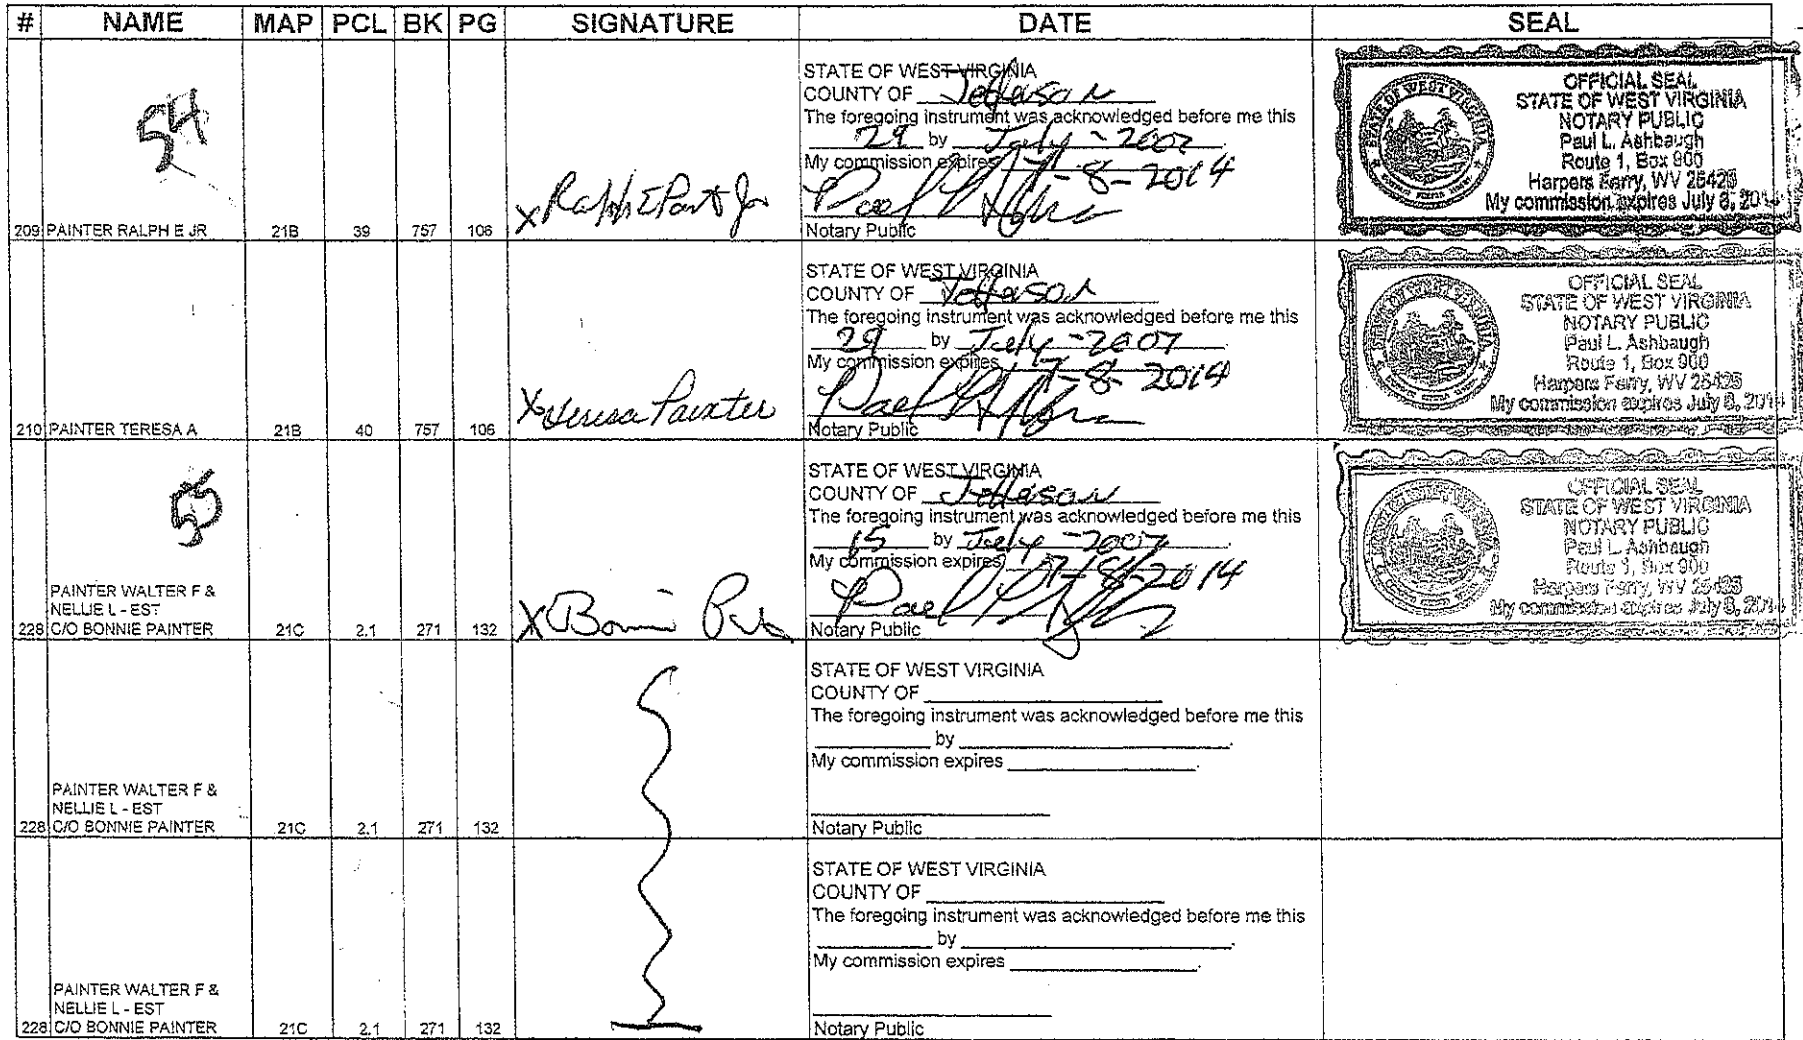 # NAME MAP PCL BK PG SIGNATURE DATE SEAL
54
209 PAINTER RALPH E JR 21B 39 757 106
X Ralph E Jr
STATE OF WEST VIRGINIA
COUNTY OF Jefferson
The foregoing instrument was acknowledged before me this
29 by July - 2007.
My commission expires 7-8-2014
Notary Public
OFFICIAL SEAL
STATE OF WEST VIRGINIA
NOTARY PUBLIC
Paul L. Ashbaugh
Route 1, Box 900
Harpers Ferry, WV 25425
My commission expires July 8, 2014
210 PAINTER TERESA A 21B 40 757 106
X Teresa Painter
STATE OF WEST VIRGINIA
COUNTY OF Jefferson
The foregoing instrument was acknowledged before me this
29 by July - 2007
My commission expires 7-8-2014
Notary Public
OFFICIAL SEAL
STATE OF WEST VIRGINIA
NOTARY PUBLIC
Paul L. Ashbaugh
Route 1, Box 900
Harpers Ferry, WV 25425
My commission expires July 8, 2014
PAINTER WALTER F &
NELLIE L - EST
228 C/O BONNIE PAINTER 21C 2.1 271 132
X Bonnie
STATE OF WEST VIRGINIA
COUNTY OF Jefferson
The foregoing instrument was acknowledged before me this
15 by July - 2007.
My commission expires 7-8-2014
Notary Public
OFFICIAL SEAL
STATE OF WEST VIRGINIA
NOTARY PUBLIC
Paul L. Ashbaugh
Route 1, Box 900
Harpers Ferry, WV 25425
My commission expires July 8, 2014
PAINTER WALTER F &
NELLIE L - EST
228 C/O BONNIE PAINTER 21C 2.1 271 132
STATE OF WEST VIRGINIA
COUNTY OF
The foregoing instrument was acknowledged before me this
by .
My commission expires .
Notary Public
PAINTER WALTER F &
NELLIE L - EST
228 C/O BONNIE PAINTER 21C 2.1 271 132
STATE OF WEST VIRGINIA
COUNTY OF
The foregoing instrument was acknowledged before me this
by .
My commission expires .
Notary Public